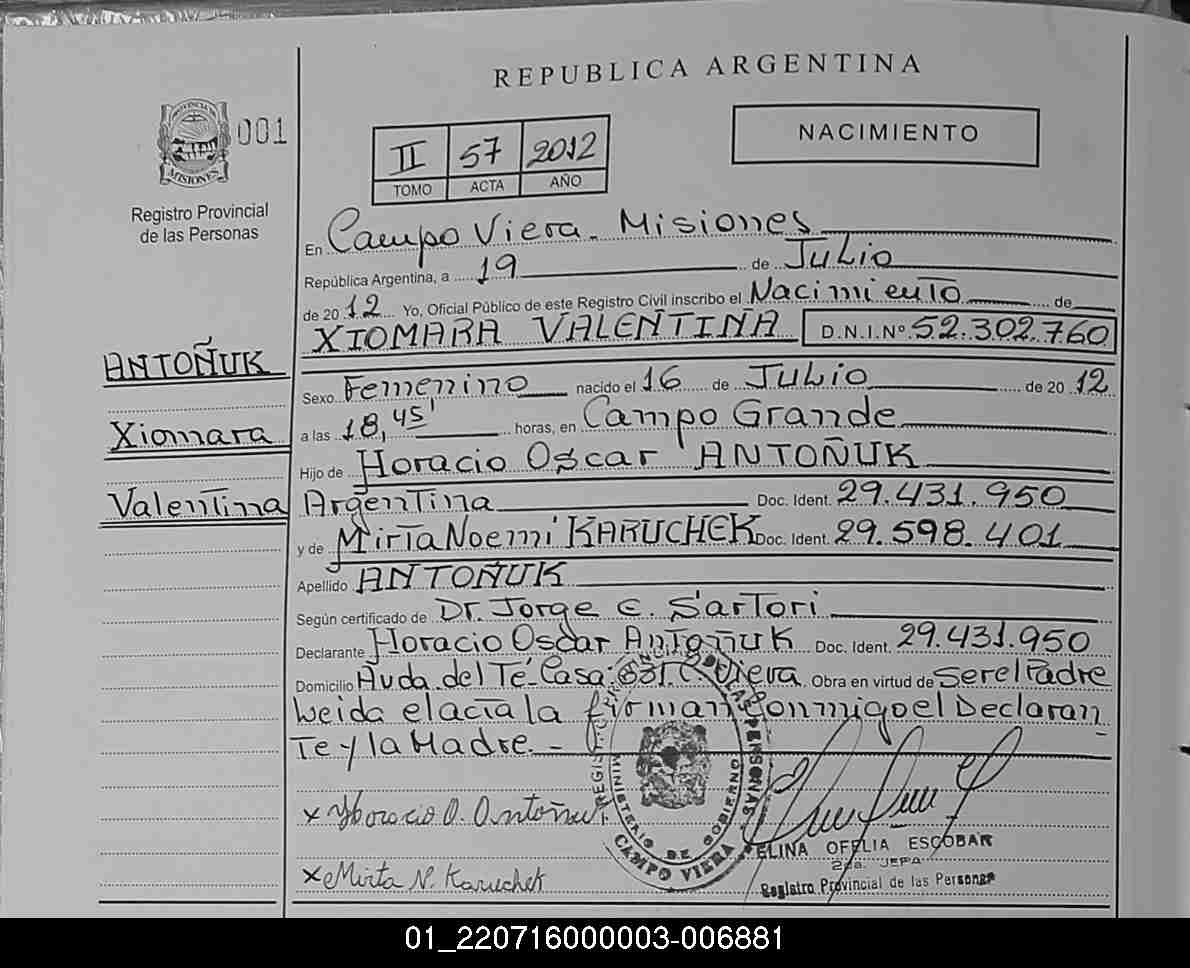 REPUBLICA ARGENTINA
001
NACIMIENTO
II 57 2012
TOMO ACTA AÑO
MISIONES
Registro Provincial
de las Personas
En Campo Viera - Misiones
República Argentina, a 19 de Julio
de 2012 Yo, Oficial Público de este Registro Civil inscribo el Nacimiento de
XIOMARA VALENTINA D.N.I.Nº 52.302.760
ANTOÑUK
Sexo Femenino nacido el 16 de Julio de 2012
Xiomara
a las 18,45' horas, en Campo Grande
Hijo de Horacio Oscar ANTOÑUK
Valentina
Argentina Doc. Ident. 29.431.950
y de Mirta Noemi KARUCHEK Doc. Ident. 29.598.401
Apellido ANTOÑUK
Según certificado de Dr. Jorge C. Sartori
Declarante Horacio Oscar Antoñuk Doc. Ident. 29.431.950
Domicilio Avda. del Té - Casa 631 C. Viera Obra en virtud de ser el Padre
Leida el acta la firman conmigo el Declaran
te y la Madre. -
x Horacio O. Antoñuk
MINISTERIO DE GOBIERNO
CAMPO VIERA
ELINA OFELIA ESCOBAR
2da. JEFA
Registro Provincial de las Personas
x Mirta N. Karuchek
01_220716000003-006881